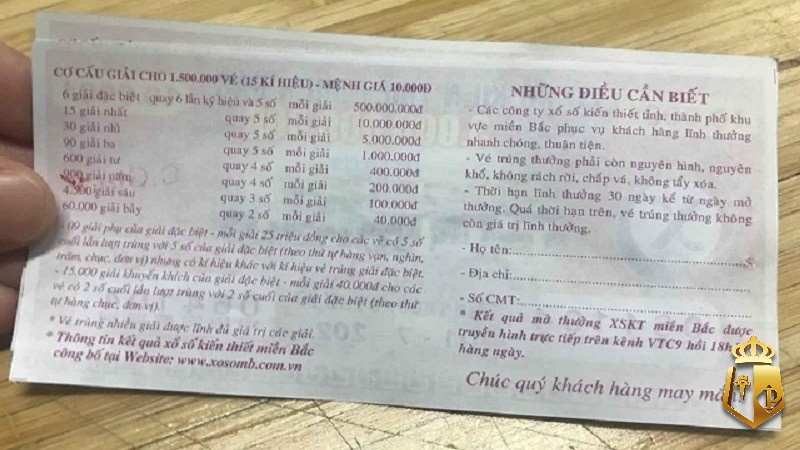 CƠ CẤU GIẢI CHO 1.500.000 VÉ (15 KÍ HIỆU) - MỆNH GIÁ 10.000Đ
6 giải đặc biệt quay 6 lần ký hiệu và 5 số mỗi giải 500.000.000đ
15 giải nhất quay 5 số mỗi giải 10.000.000đ
30 giải nhì quay 5 số mỗi giải 5.000.000đ
90 giải ba quay 5 số mỗi giải 1.000.000đ
600 giải tư quay 4 số mỗi giải 400.000đ
giải năm quay 4 số mỗi giải 200.000đ
giải sáu quay 3 số mỗi giải 100.000đ
60.000 giải bảy quay 2 số mỗi giải 40.000đ
giải phụ của giải đặc biệt - mỗi giải 25 triệu đồng cho các vé có 5 số
cuối lần lượt trùng với 5 số của giải đặc biệt (theo thứ tự hàng vạn, nghìn,
trăm, chục, đơn vị) nhưng có kí hiệu khác với kí hiệu vé trúng giải đặc biệt.
- 15.000 giải khuyến khích của giải đặc biệt - mỗi giải 40.000đ cho các
vé có 2 số cuối lần lượt trùng với 2 số cuối của giải đặc biệt (theo thứ
tự hàng chục, đơn vị).
* Vé trúng nhiều giải được lĩnh đủ giá trị các giải.
* Thông tin kết quả xổ số kiến thiết miền Bắc
công bố tại Website: www.xosomb.com.vn
NHỮNG ĐIỀU CẦN BIẾT
- Các công ty xổ số kiến thiết tỉnh, thành phố khu
vực miền Bắc phục vụ khách hàng lĩnh thưởng
nhanh chóng, thuận tiện.
- Vé trúng thưởng phải còn nguyên hình, nguyên
khổ, không rách rời, chắp vá, không tẩy xóa.
- Thời hạn lĩnh thưởng 30 ngày kể từ ngày mở
thưởng. Quá thời hạn trên, vé trúng thưởng không
còn giá trị lĩnh thưởng.
- Họ tên:
- Địa chỉ:
- Số CMT:
* Kết quả mở thưởng XSKT miền Bắc được
truyền hình trực tiếp trên kênh VTC9 hồi 18h
hàng ngày.
Chúc quý khách hàng may mắn!